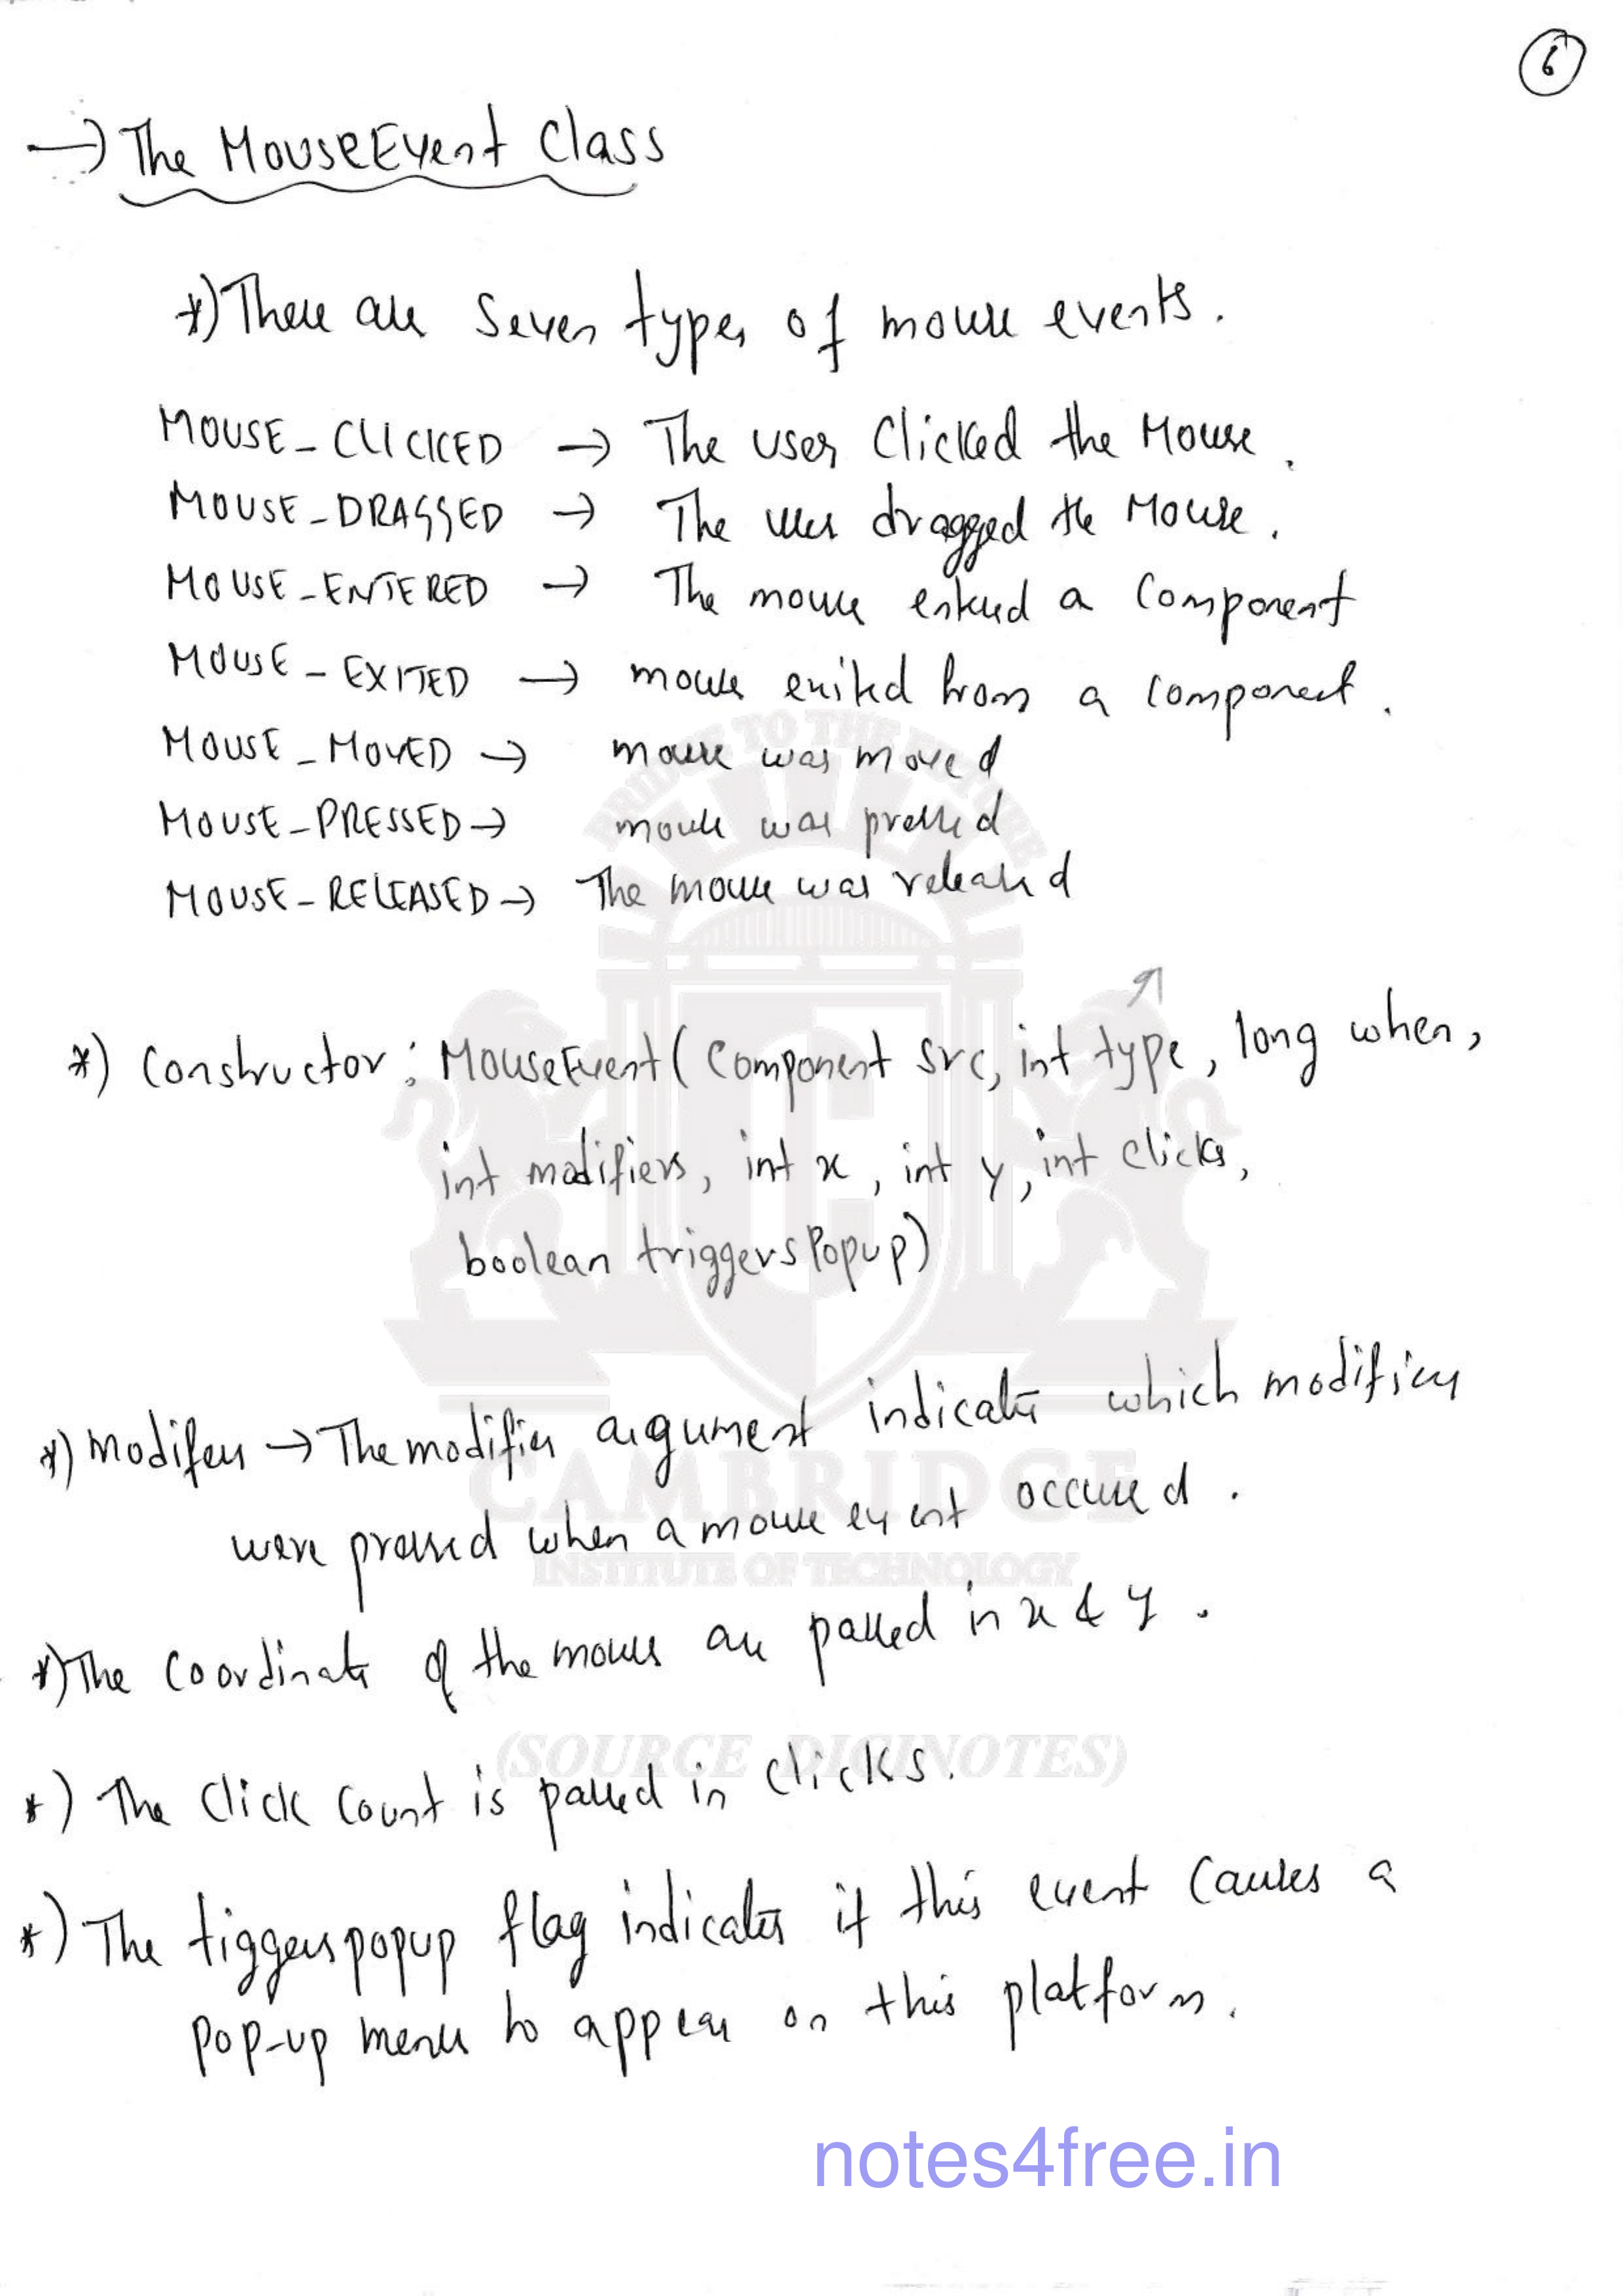 6
→ The MouseEvent Class
*) There are Seven types of mouse events.
MOUSE_CLICKED → The user Clicked the Mouse.
MOUSE_DRAGGED → The user dragged the Mouse.
MOUSE_ENTERED → The mouse entered a Component
MOUSE_EXITED → mouse exited from a component.
MOUSE_MOVED → mouse was moved
MOUSE_PRESSED → mouse was pressed
MOUSE_RELEASED → The mouse was released
*) Constructor: MouseEvent(Component src, int type, long when,
int modifiers, int x, int y, int clicks,
boolean triggersPopup)
*) Modifers → The modifier argument indicates which modifiers
were pressed when a mouse event occured.
*) The Coordinates of the mouse are passed in x & y.
*) The Click Count is passed in clicks.
*) The tiggers popup flag indicates if this event causes a
pop-up menu to appear on this platform.
BRIDGE TO THE FUTURE
CAMBRIDGE
INSTITUTE OF TECHNOLOGY
(SOURCE DIGINOTES)
notes4free.in